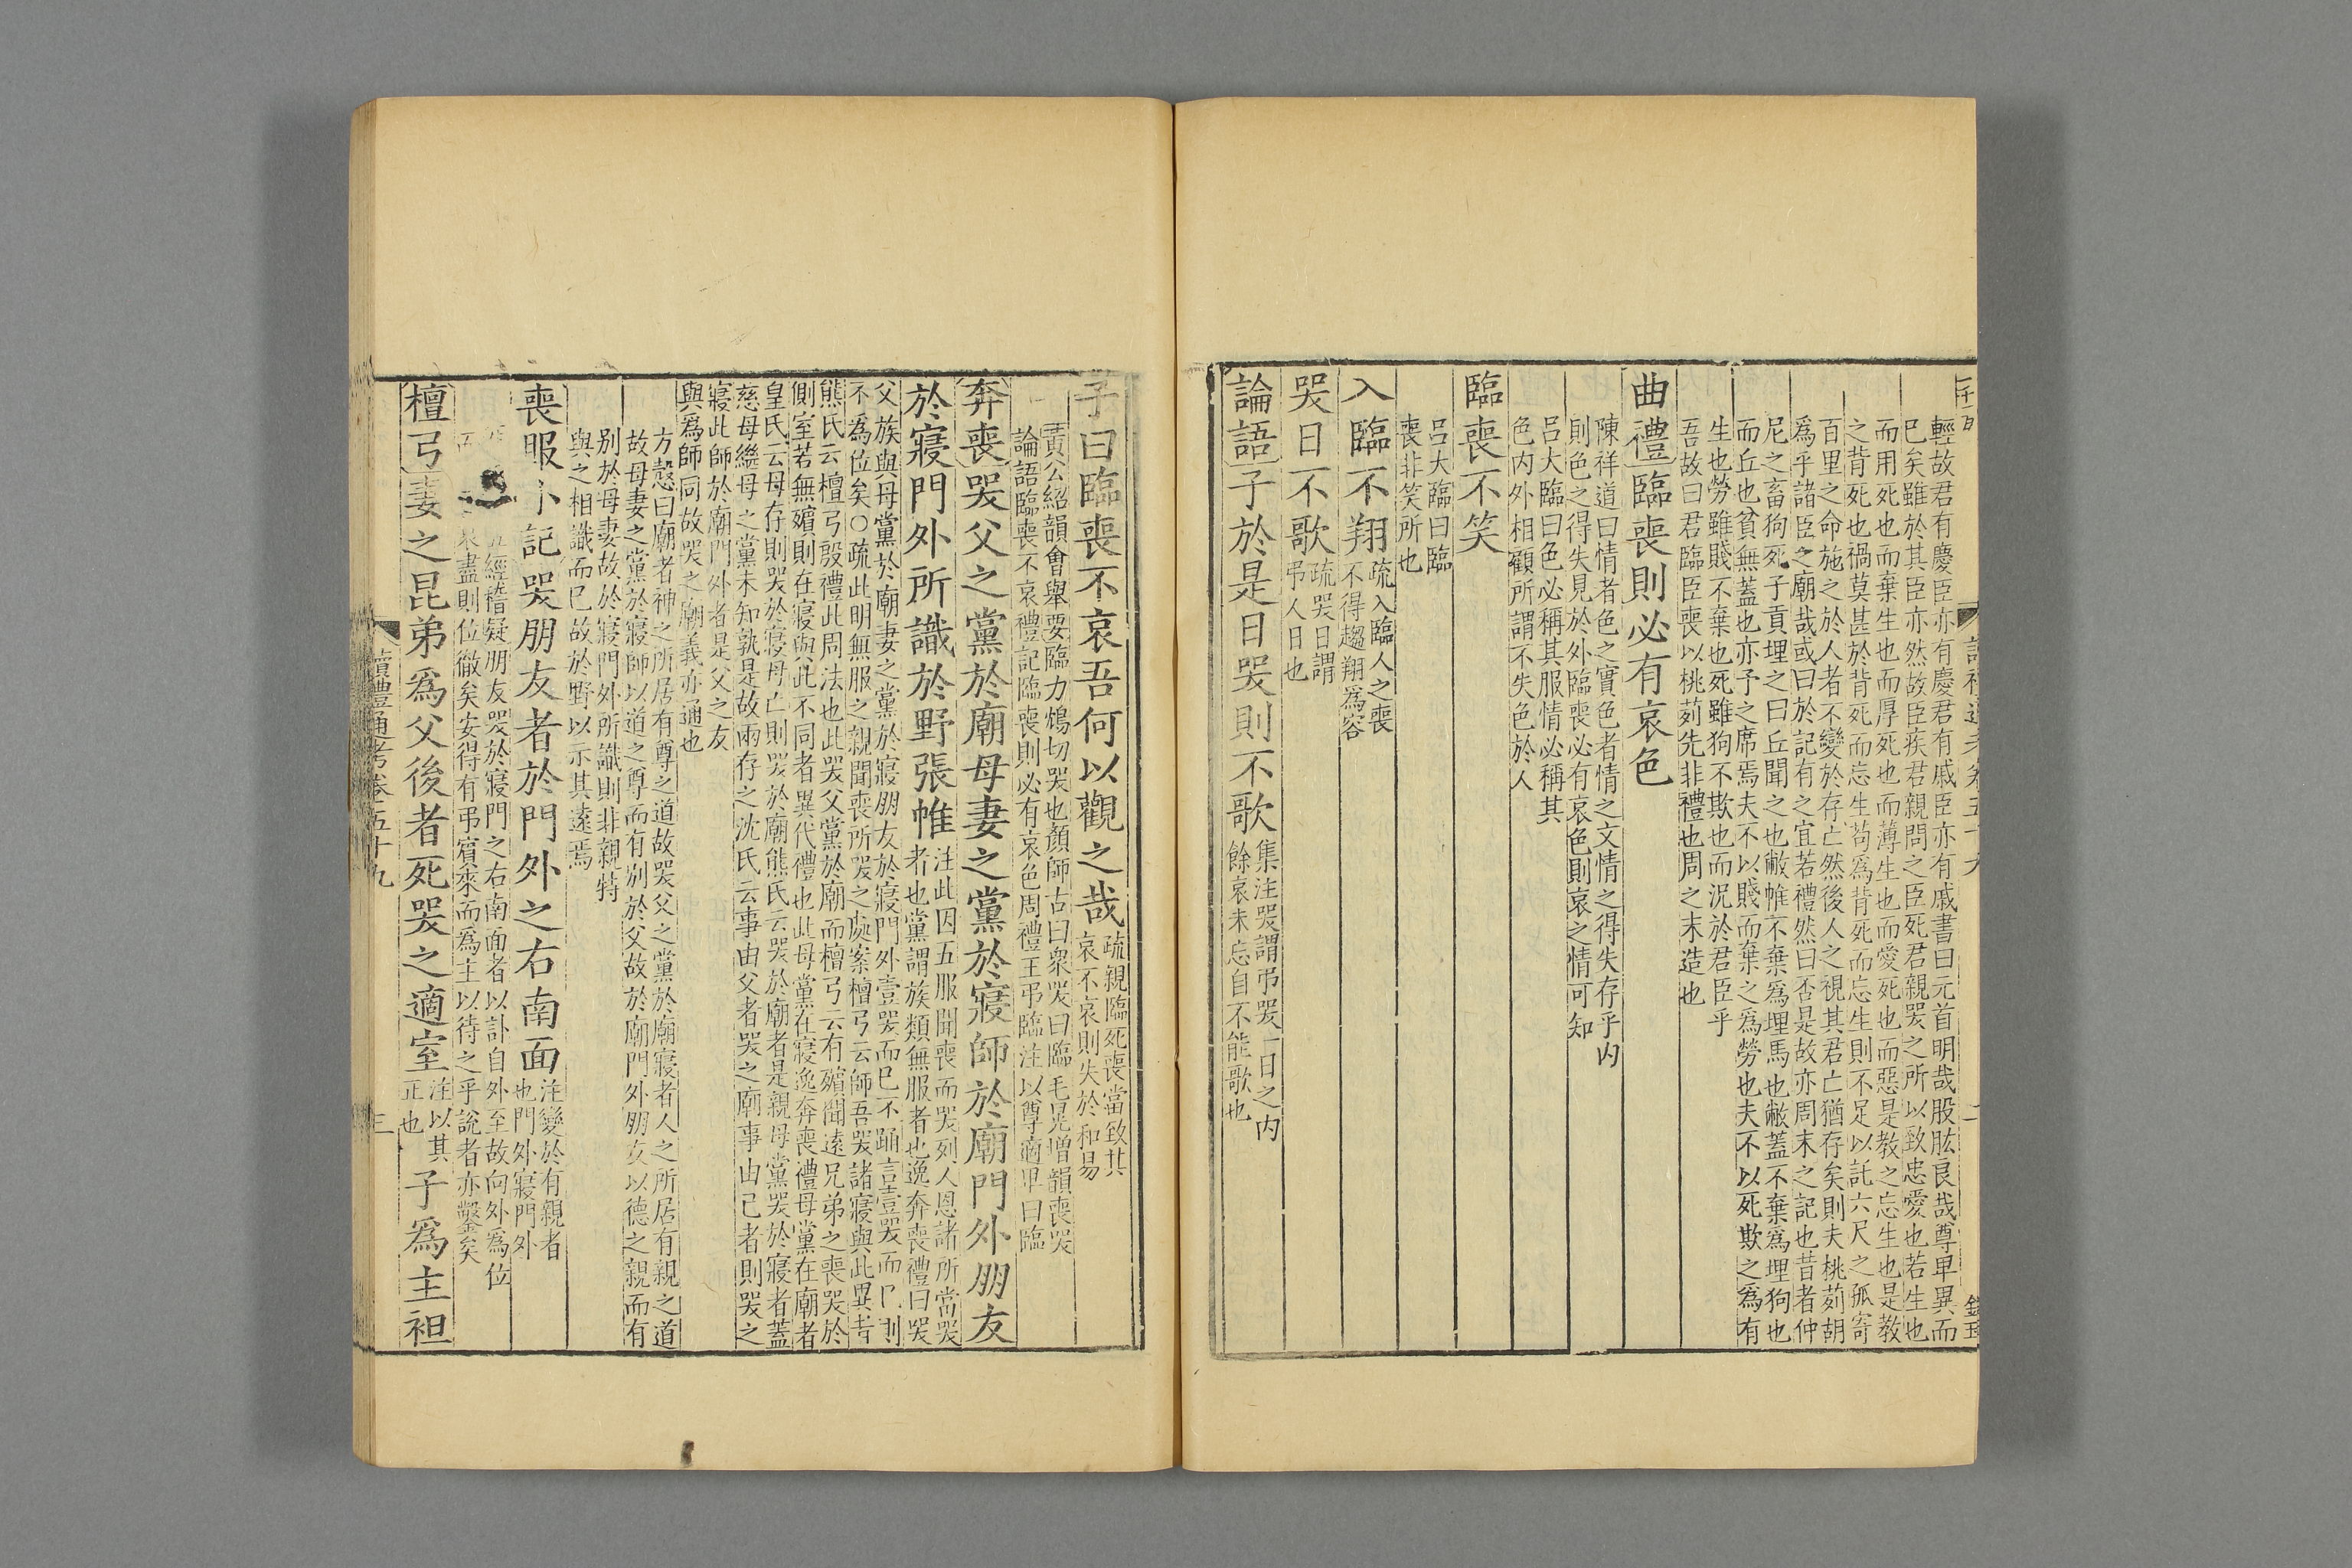 輕故君有慶臣亦有慶君有戚臣亦有戚書曰元首明哉股肱良哉尊卑異而
已矣雖於其臣亦然故臣疾君親問之臣死君親哭之所以致忠愛也若生也
而用死也而棄生也而厚死也而薄生也而愛死也而惡是教之忘生也是教
之背死也禍莫甚於背死而忘生苟爲背死而忘生則不足以託六尺之孤寄
百里之命施之於人者不變於存亡然後人之視其君亡猶存矣則夫桃茢胡
爲乎諸臣之廟哉或曰於記有之宜若禮然曰否是故亦周末之記也昔者仲
尼之畜狗死子貢埋之曰丘聞之也敝帷不棄爲埋馬也敝蓋不棄爲埋狗也
而丘也貧無蓋也亦予之席焉夫不以賤而棄之爲勞也夫不以死欺之爲有
生也勞雖賤不棄也死雖狗不欺也而況於君臣乎
吾故曰君臨臣喪以桃茢先非禮也周之末造也
曲禮臨喪則必有哀色
陳祥道曰情者色之實色者情之文情之得失存乎内
則色之得失見於外臨喪必有哀色則哀之情可知
呂大臨曰色必稱其服情必稱其
色内外相顧所謂不失色於人
臨喪不笑
呂大臨曰臨
喪非笑所也
入臨不翔疏入臨人之喪
不得趨翔爲容
哭日不歌疏哭日謂
弔人日也
論語子於是日哭則不歌集注哭謂弔哭一日之内
餘哀未忘自不能歌也
子曰臨喪不哀吾何以觀之哉疏親臨死喪當致其
哀不哀則失於和易
黃公紹韻會舉要臨力鴆切哭也顏師古曰衆哭曰臨毛晃增韻喪哭
論語臨喪不哀禮記臨喪則必有哀色周禮王弔臨注以尊適卑曰臨
奔喪哭父之黨於廟母妻之黨於寢師於廟門外朋友
於寢門外所識於野張帷注此因五服聞喪而哭列人恩諸所當哭
者也黨謂族類無服者也逸奔喪禮曰哭
父族與母黨於廟妻之黨於寢朋友於寢門外壹哭而已不踊言壹哭而已則
不爲位矣○疏此明無服之親聞喪所哭之處案檀弓云師吾哭諸寢與此異者
熊氏云檀弓殷禮此周法也此哭父黨於廟而檀弓云有殯聞遠兄弟之喪哭於
側室若無殯則在寢與此不同者異代禮也此母黨在寢逸奔喪禮母黨在廟者
皇氏云母存則哭於寢母亡則哭於廟熊氏云哭於廟者是親母黨哭於寢者蓋
慈母繼母之黨未知孰是故兩存之沈氏云事由父者哭之廟事由己者則哭之
寢此師於廟門外者是父之友
與爲師同故哭之廟義亦通也
方慤曰廟者神之所居有尊之道故哭父之黨於廟寢者人之所居有親之道
故母妻之黨於寢師以道之尊而有別於父故於廟門外朋友以德之親而有
別於母妻故於寢門外所識則非親特
與之相識而已故於野以示其遠焉
喪服小記哭朋友者於門外之右南面注變於有親者
也門外寢門外
五經稽疑朋友哭於寢門之右南面者以訃自外至故向外爲位
哀盡則位徹矣安得有弔賓來而爲主以待之乎說者亦鑿矣
檀弓妻之昆弟爲父後者死哭之適室注以其
正也子爲主袒
讀禮通考卷五十九
三